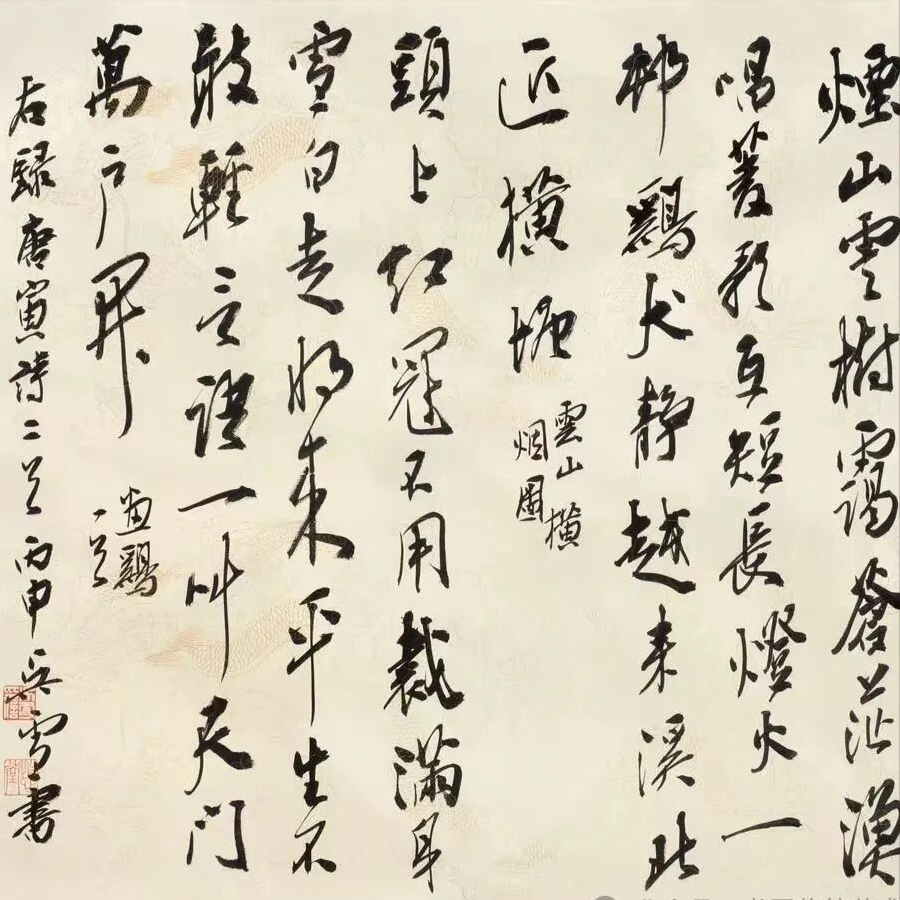 煙山雲樹靄蒼茫漁
唱菱歌互短長燈火一
邨鷄犬静越来溪北
近橫塘
雲山橫
烟圖
頭上紅冠不用裁滿身
雪白走将来平生不
敢輕言語一叫天門
萬户開
畫鷄
一首
右録唐寅詩二首丙申雪書